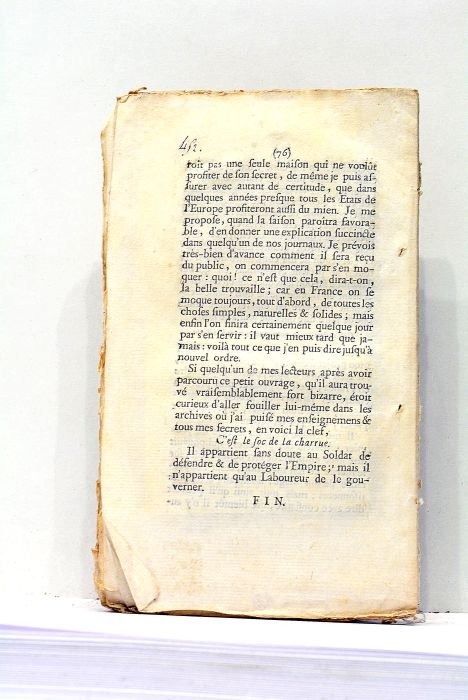 452.
(76)
roit pas une seule maison qui ne voulût
profiter de son secret, de même je puis as-
surer avec autant de certitude, que dans
quelques années presque tous les Etats de
l'Europe profiteront aussi du mien. Je me
propose, quand la saison paroîtra favora-
ble, d'en donner une explication succincte
dans quelqu'un de nos journaux. Je prévois
très-bien d'avance comment il sera reçu
du public, on commencera par s'en mo-
quer : quoi ! ce n'est que cela, dira-t-on,
la belle trouvaille ; car en France on se
moque toujours, tout d'abord, de toutes les
choses simples, naturelles & solides ; mais
enfin l'on finira certainement quelque jour
par s'en servir : il vaut mieux tard que ja-
mais : voilà tout ce que j'en puis dire jusqu'à
nouvel ordre.
Si quelqu'un de mes lecteurs après avoir
parcouru ce petit ouvrage, qu'il aura trou-
vé vraisemblablement fort bizarre, étoit
curieux d'aller fouiller lui-même dans les
archives où j'ai puisé mes enseignemens &
tous mes secrets, en voici la clef,
C'est le soc de la charrue.
Il appartient sans doute au Soldat de
défendre & de protéger l'Empire ; mais il
n'appartient qu'au Laboureur de le gou-
verner.
FIN.